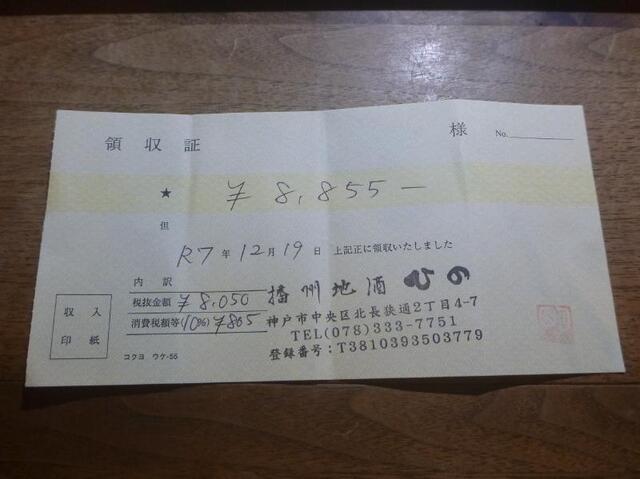 領収証 様 No.
★ ¥8,855-
但
R7年12月19日 上記正に領収いたしました
内訳
税抜金額 ¥8,050
消費税額等(10%) ¥805
収入
印紙
コクヨ ウケ-55
播州地酒 ひの
神戸市中央区北長狭通2丁目4-7
TEL(078)333-7751
登録番号:T3810393503779